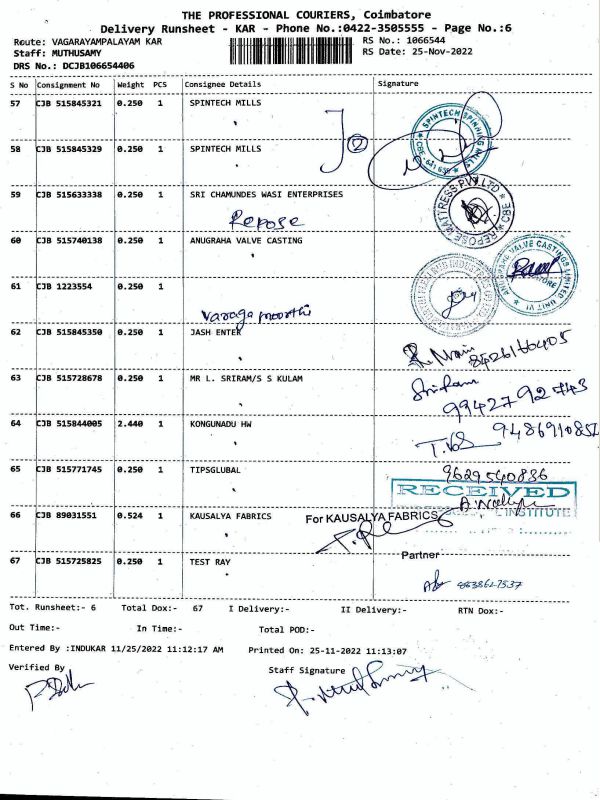 THE PROFESSIONAL COURIERS, Coimbatore
Delivery Runsheet - KAR - Phone No.:0422-3505555 - Page No.:6
Route: VAGARAYAMPALAYAM KAR RS No.: 1066544
Staff: MUTHUSAMY RS Date: 25-Nov-2022
DRS No.: DCJB106654406
S No Consignment No Weight PCS Consignee Details Signature
57 CJB 515845321 0.250 1 SPINTECH MILLS
SPINTECH SPINNING MILLS
58 CJB 515845329 0.250 1 SPINTECH MILLS 2
59 CJB 515633338 0.250 1 SRI CHAMUNDES WASI ENTERPRISES
REPOSE MATTRESS PVT LTD CBE
Repose
60 CJB 515740138 0.250 1 ANUGRAHA VALVE CASTING
ANUGRAHA VALVE CASTINGS LIMITED UNIT VI
61 CJB 1223554 0.250 1
Varagamoorthi
62 CJB 515845350 0.250 1 JASH ENTER
63 CJB 515728678 0.250 1 MR L. SRIRAM/S S KULAM Sriram
9942792443
64 CJB 515844005 2.440 1 KONGUNADU HW
65 CJB 515771745 0.250 1 TIPSGLUBAL 9629540836
RECEIVED
INSTITUTE
66 CJB 89031551 0.524 1 KAUSALYA FABRICS For KAUSALYA FABRICS
Partner
67 CJB 515725825 0.250 1 TEST RAY
Tot. Runsheet:- 6 Total Dox:- 67 I Delivery:- II Delivery:- RTN Dox:-
Out Time:- In Time:- Total POD:-
Entered By :INDUKAR 11/25/2022 11:12:17 AM Printed On: 25-11-2022 11:13:07
Verified By Staff Signature